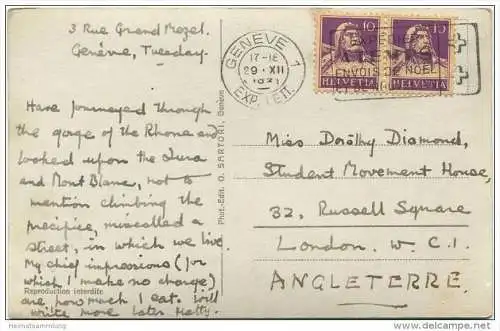 3 Rue Grand Mezel.
Genève, Tuesday.
Have journeyed through
the gorge of the Rhone and
looked upon the Jura
and Mont Blanc, not to
mention climbing the
precipice, miscalled a
street, in which we live.
My chief impressions (for
which I make no charge)
are how much I eat. Will
write more later Hatty.
Reproduction interdite
Phot.-Edit. O. SARTORI, Genève
GENÈVE 1
17-18
29·XII
EXP. LETT.
ENVOIS DE NOËL
10
HELVETIA
10
HELVETIA
Miss Dorothy Diamond,
Student Movement House,
32, Russell Square
London. W.C.1.
ANGLETERRE.
Heimatsammlung